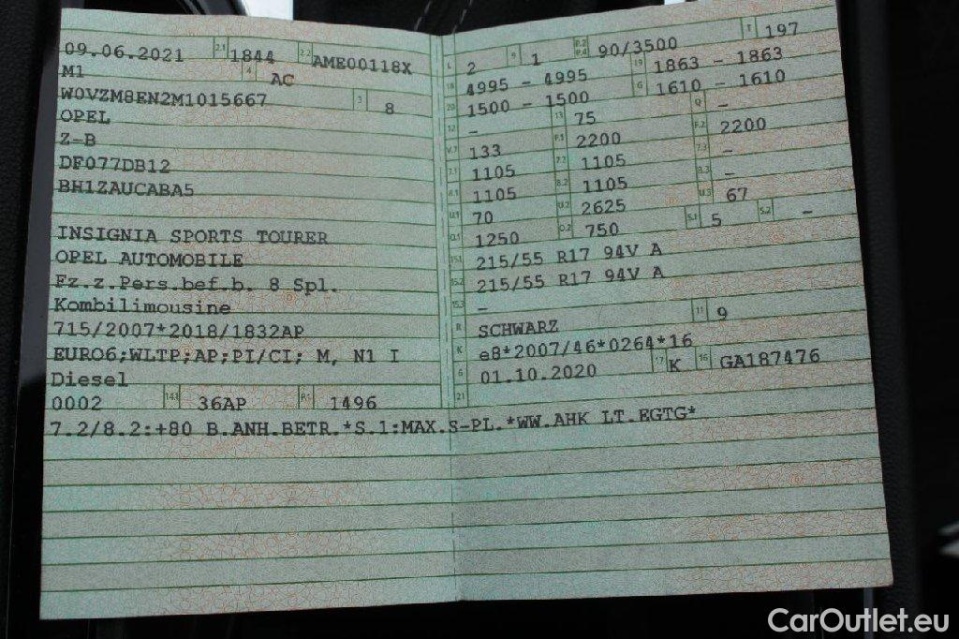 09.06.2021 2.1 1844 2.2 AME00118X
M1 4 AC
W0VZM8EN2M1015667 3 8
OPEL
Z-B
DF077DB12
BH1ZAUCABA5
INSIGNIA SPORTS TOURER
OPEL AUTOMOBILE
Fz.z.Pers.bef.b. 8 Spl.
Kombilimousine
715/2007*2018/1832AP
EURO6;WLTP;AP;PI/CI; M, N1 I
Diesel
0002 14.1 36AP P.1 1496
L 2 9 1 P.2 P.4 90/3500 T 197
18 4995 - 4995 19 1863 - 1863
20 1500 - 1500 G 1610 - 1610
12 - 13 75 Q -
V.7 133 F.1 2200 F.2 2200
7.1 1105 7.2 1105 7.3 -
8.1 1105 8.2 1105 8.3 -
U.1 70 U.2 2625 U.3 67
O.1 1250 O.2 750 S.1 5 S.2 -
15.1 215/55 R17 94V A
15.2 215/55 R17 94V A
15.3 -
R SCHWARZ 11 9
K e8*2007/46*0264*16
6 01.10.2020 17 K 16 GA187476
21
7.2/8.2:+80 B.ANH.BETR.*S.1:MAX.S-PL.*WW.AHK LT.EGTG*
CarOutlet.eu